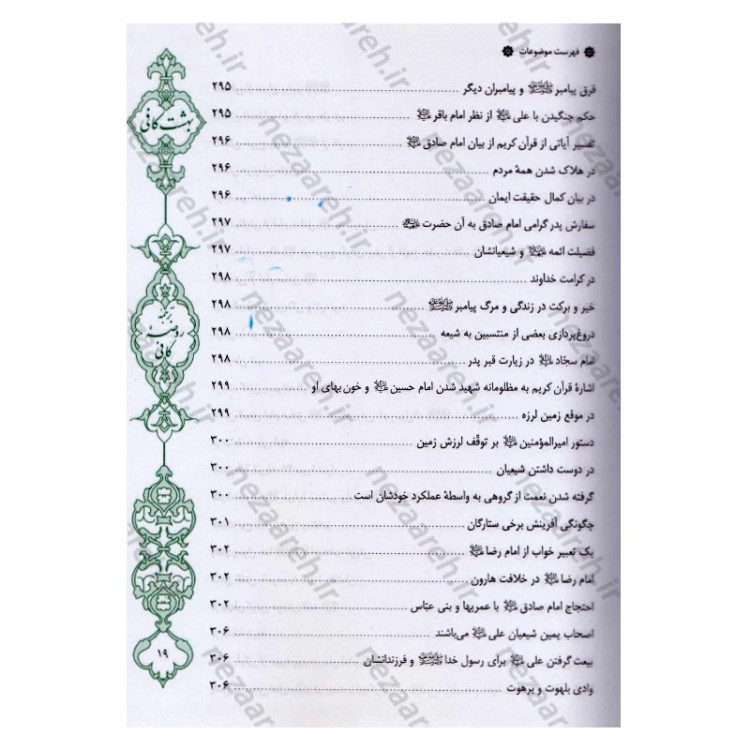 فهرست موضوعات
فرق پیامبر ﷺ و پیامبران دیگر ... ۲۹۵
حکم جنگیدن با علی علیه‌السلام از نظر امام باقر علیه‌السلام ... ۲۹۵
تفسیر آیاتی از قرآن کریم از بیان امام صادق علیه‌السلام ... ۲۹۶
در هلاک شدن همهٔ مردم ... ۲۹۶
در بیان کمال حقیقت ایمان ... ۲۹۶
سفارش پدر گرامی امام صادق به آن حضرت علیه‌السلام ... ۲۹۷
فضیلت ائمه علیهم‌السلام و شیعیانشان ... ۲۹۷
در کرامت خداوند ... ۲۹۸
خیر و برکت در زندگی و مرگ پیامبر ﷺ ... ۲۹۸
دروغ‌پردازی بعضی از منتسبین به شیعه ... ۲۹۸
امام سجّاد علیه‌السلام در زیارت قبر پدر ... ۲۹۸
اشارهٔ قرآن کریم به مظلومانه شهید شدن امام حسین علیه‌السلام و خون بهای او ... ۲۹۹
در موقع زمین لرزه ... ۲۹۹
دستور امیرالمؤمنین علیه‌السلام بر توقّف لرزش زمین ... ۳۰۰
در دوست داشتن شیعیان ... ۳۰۰
گرفته شدن نعمت از گروهی به واسطهٔ عملکرد خودشان است ... ۳۰۰
چگونگی آفرینش برخی ستارگان ... ۳۰۱
یک تعبیر خواب از امام رضا علیه‌السلام ... ۳۰۲
امام رضا علیه‌السلام در خلافت هارون ... ۳۰۲
احتجاج امام صادق علیه‌السلام با عمریها و بنی عبّاس ... ۳۰۲
اصحاب یمین شیعیان علی علیه‌السلام می‌باشند ... ۳۰۶
بیعت گرفتن علی علیه‌السلام برای رسول خدا ﷺ و فرزندانشان ... ۳۰۶
وادی بلهوت و برهوت ... ۳۰۶
بهشت کافی
ترجمهٔ
روضهٔ
کافی
۱۹
nezaareh.ir